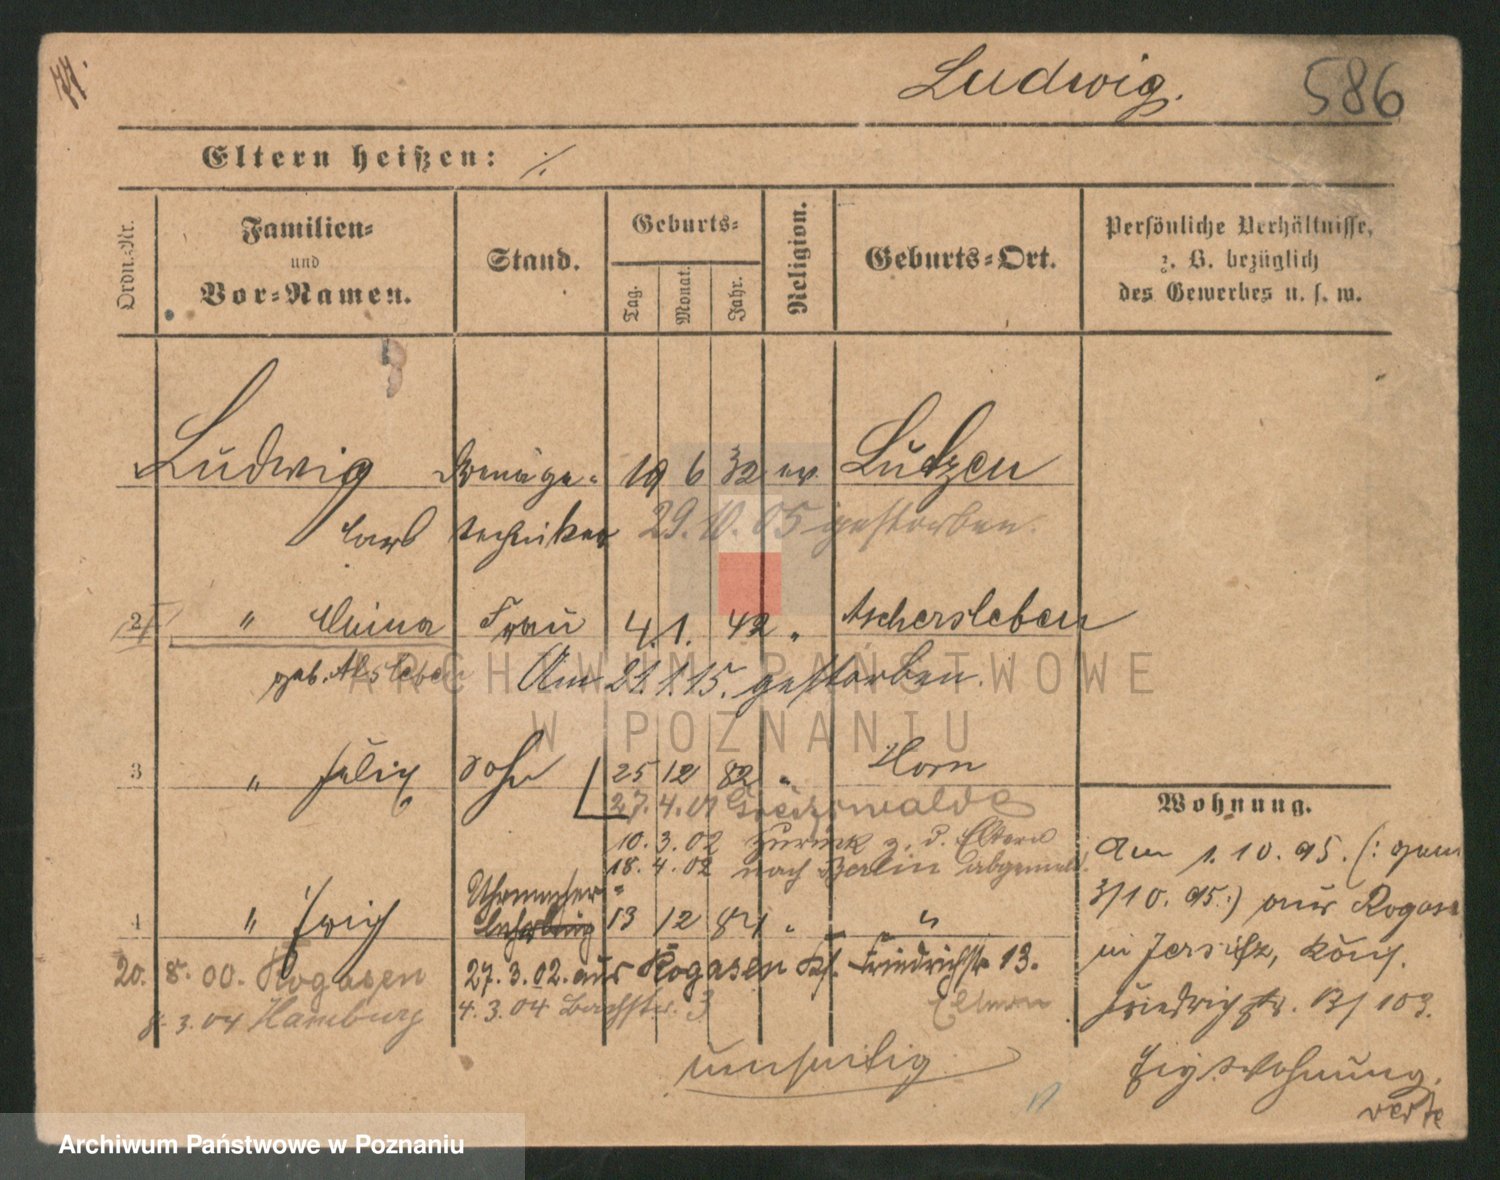 Ludwig. 586
Eltern heißen: ./.
Ordn.-Nr.
Familien-
und
Vor-Namen.
Stand.
Geburts-
Tag.
Monat.
Jahr.
Religion.
Geburts-Ort.
Persönliche Verhältnisse,
z. B. bezüglich
des Gewerbes u. s. w.
Ludwig 19 6 32 ev. Lützen
Carl techniker 29.10.05 gestorben.
2 " Frau 4. 1. 42 " Aschersleben
geb. Alsleben Am 21.1.15. gestorben.
ARCHIWUM PAŃSTWOWE
W POZNANIU
3 " Felix Sohn 25 12 82 " Horn
27. 4. 01
10. 3. 02 zurück z. d. Eltern
18. 4. 02 nach Berlin abgemeld.
Uhrmacher
4 " Erich Lehrling 13 12 84 " "
20. 8. 00. Rogasen 27. 3. 02. aus Rogasen Kf. Friedrichstr 13.
8. 3. 04 Hamburg 4. 3. 04 Bachstr. 3 Eltern
umseitig
Wohnung.
Am 1. 10. 95. (: gem
3/10. 95:) aus Rogasen
in Jersitz, König.
Friedrichstr. 103.
Wohnung.
verte
Archiwum Państwowe w Poznaniu